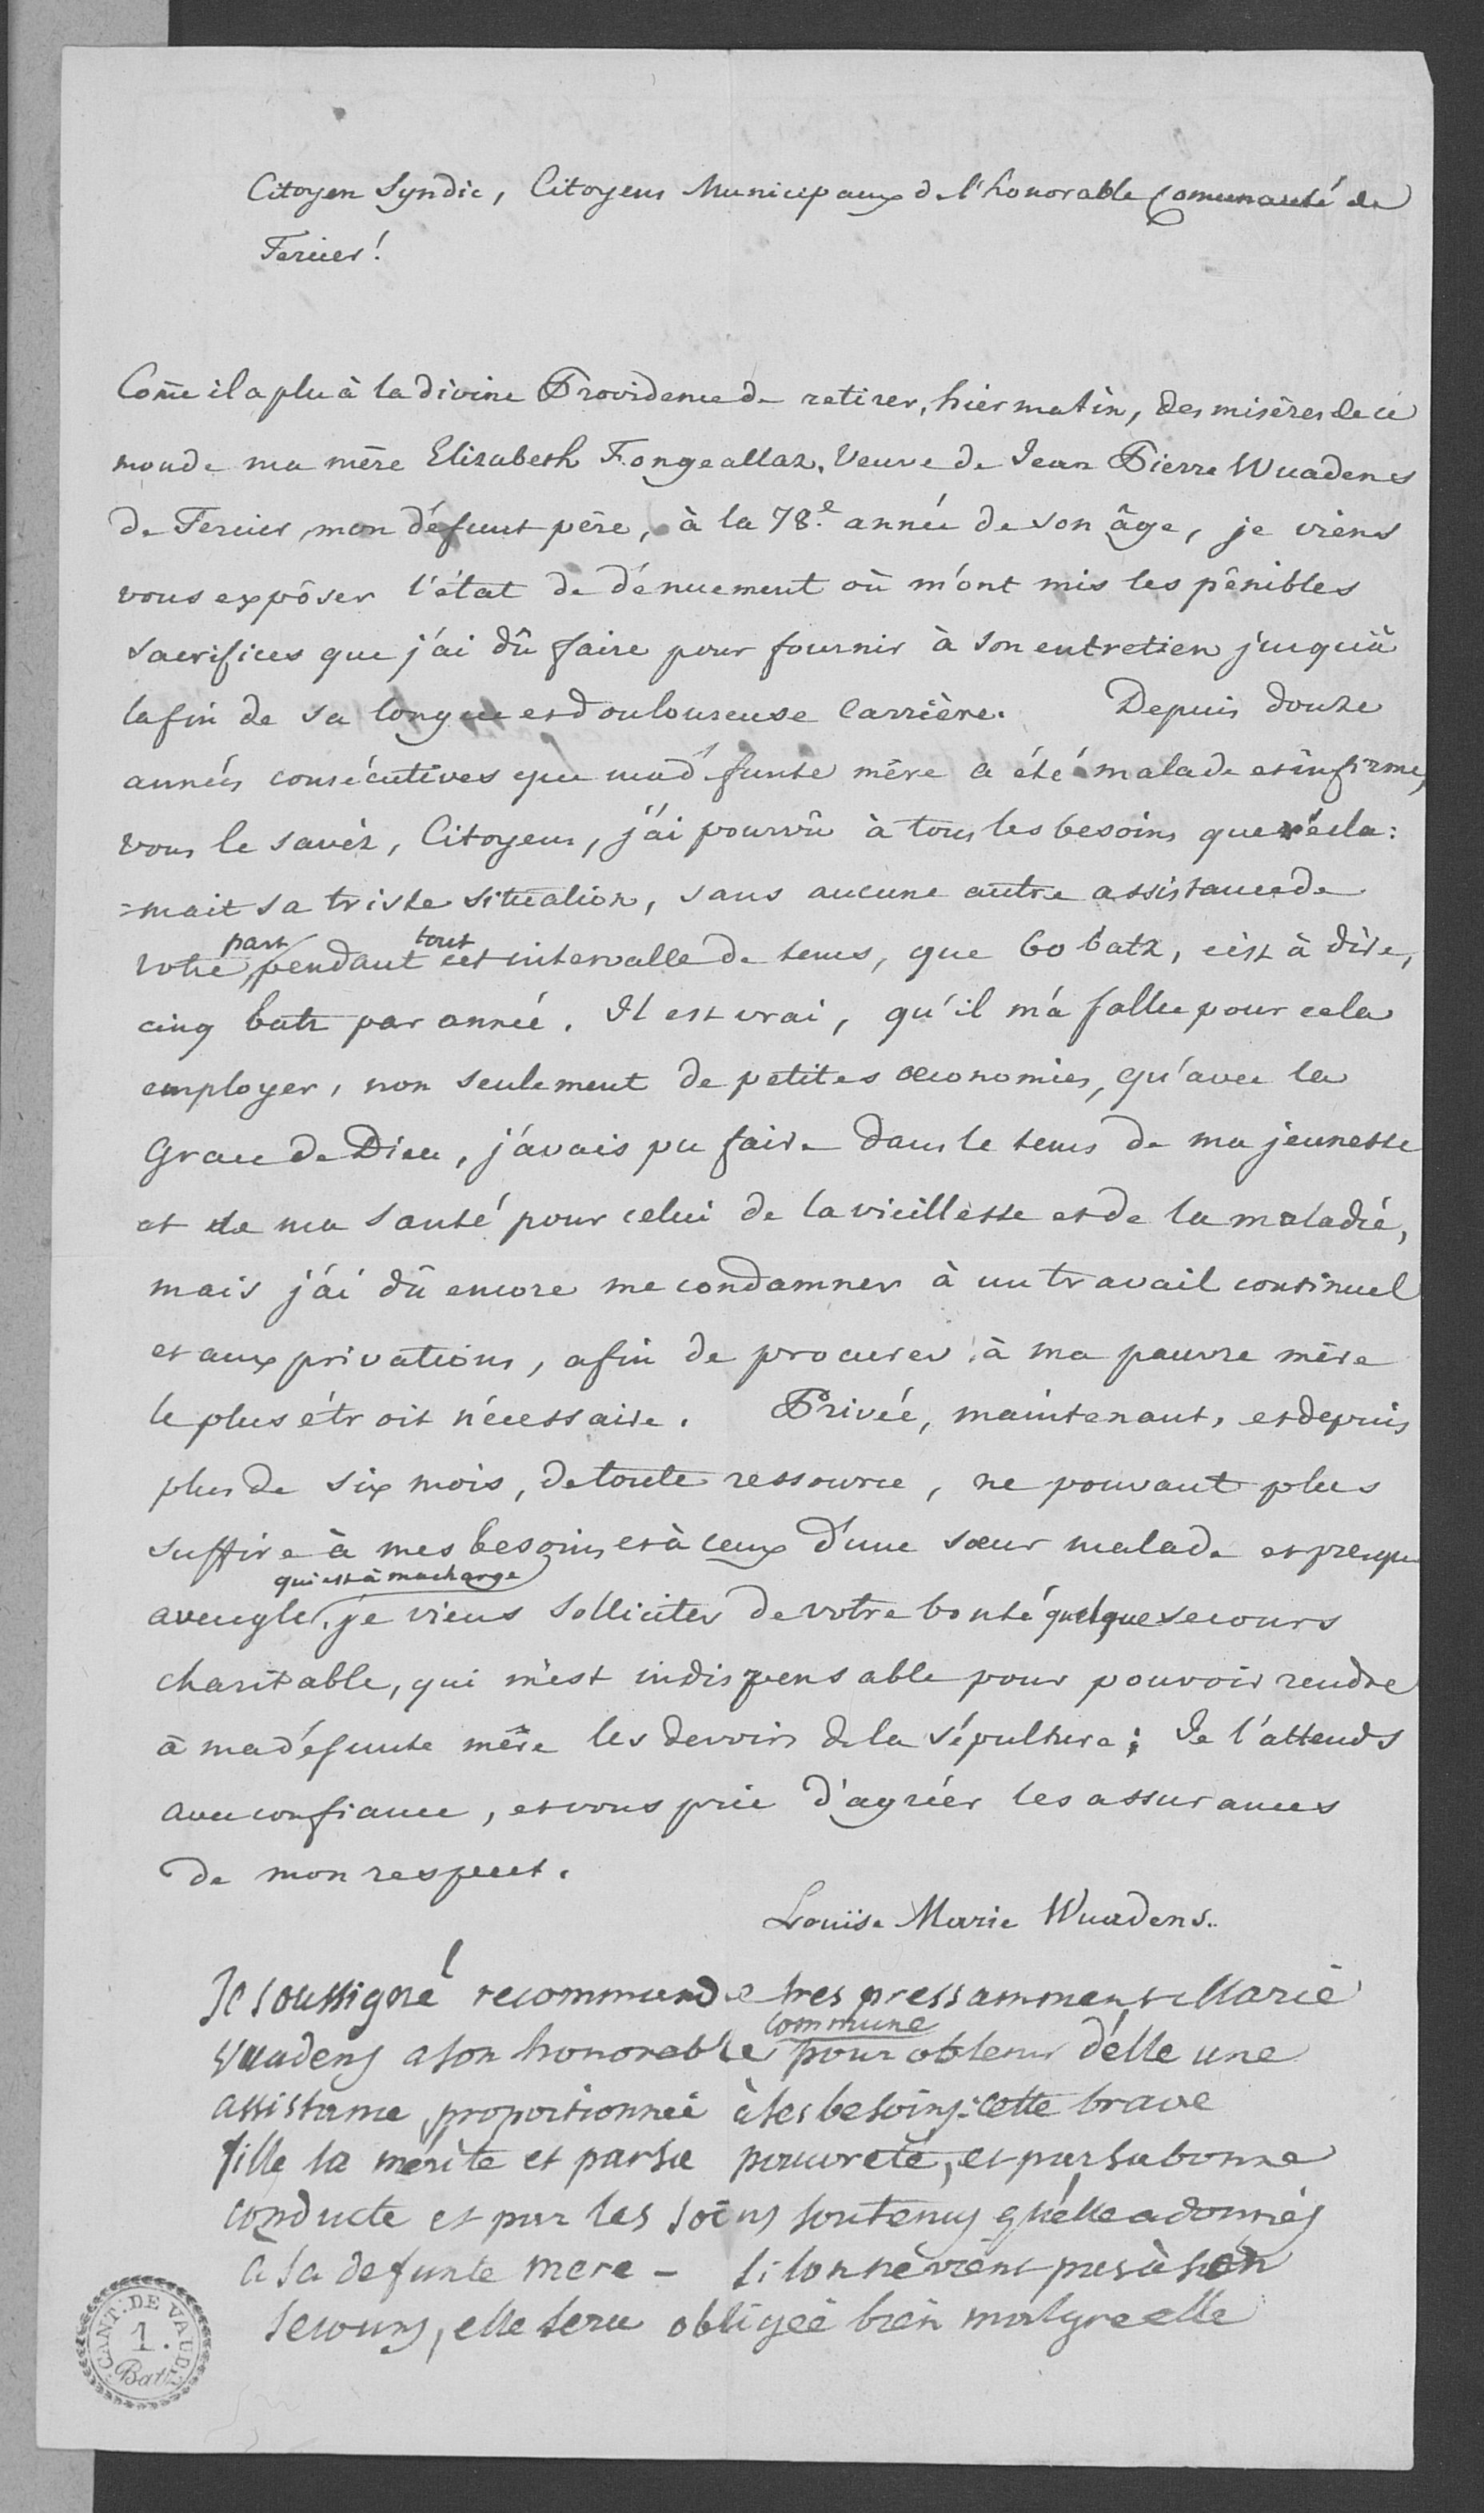 Citoyen Syndic, Citoyens Municipaux de l'honorable Comunauté de
Fernex!
Come il a plu à la divine Providence de retirer, hier matin, des misères de ce
monde ma mère Elisabeth Fongeallaz, Veuve de Jean Pierre Wuadens
de mon défunt père, à la 78.e année de son âge, je viens
vous expôser l'état de dénuement où m'ont mis les pénibles
sacrifices que j'ai dû faire pour fournir à son entretien jusqu'à
la fin de sa longue et douloureuse carrière. Depuis douze
années consécutives que ma défunte mère a été malade et infirme,
vous le savéz, Citoyens, j'ai pourvû à tous les besoins que récla:
=mait sa triste situation, sans aucune autre assistance de
votre part pendant tout cet intervalle de tems, que 60 batz, c'est à dire,
cinq batz par année. Il est vrai, qu'il m'a fallu pour cela
employer, non seulement de petites œconomies, qu'avec la
Grace de Dieu, j'avais pu faire dans le tems de ma jeunesse
et de ma santé pour celui de la vieillesse et de la maladie,
mais j'ai dû encore me condamner à un travail continuel
et aux privations, afin de procurer à ma pauvre mère
le plus étroit nécessaire. Privée, maintenant, et depuis
plus de six mois, de toute ressource, ne pouvant plus
suffire à mes besoins et à ceux d'une sœur malade et presque
aveugle, qui est à ma charge je viens solliciter de votre bonté quelque secours
charitable, qui m'est indispensable pour pouvoir rendre
à ma défunte mère les devoirs de la sépulture; Je l'attends
avec confiance, et vous prie d'agréer les assurances
de mon respect.
Louïse Marie Wuadens.
Je soussigné recommande tres pressamment Marie
Wuadens a son honorable commune pour obtenir d'elle une
assistance proportionnée à ses besoins: cette brave
fille la mérite et par sa pauvreté, et par sa bonne
conducte et par les soins soutenus qu'elle a donnés
à sa defunte mere – si lon ne vient pas à son
secours, elle sera obligée bien malgré elle
CANT: DE VAUD:
1.
Batz